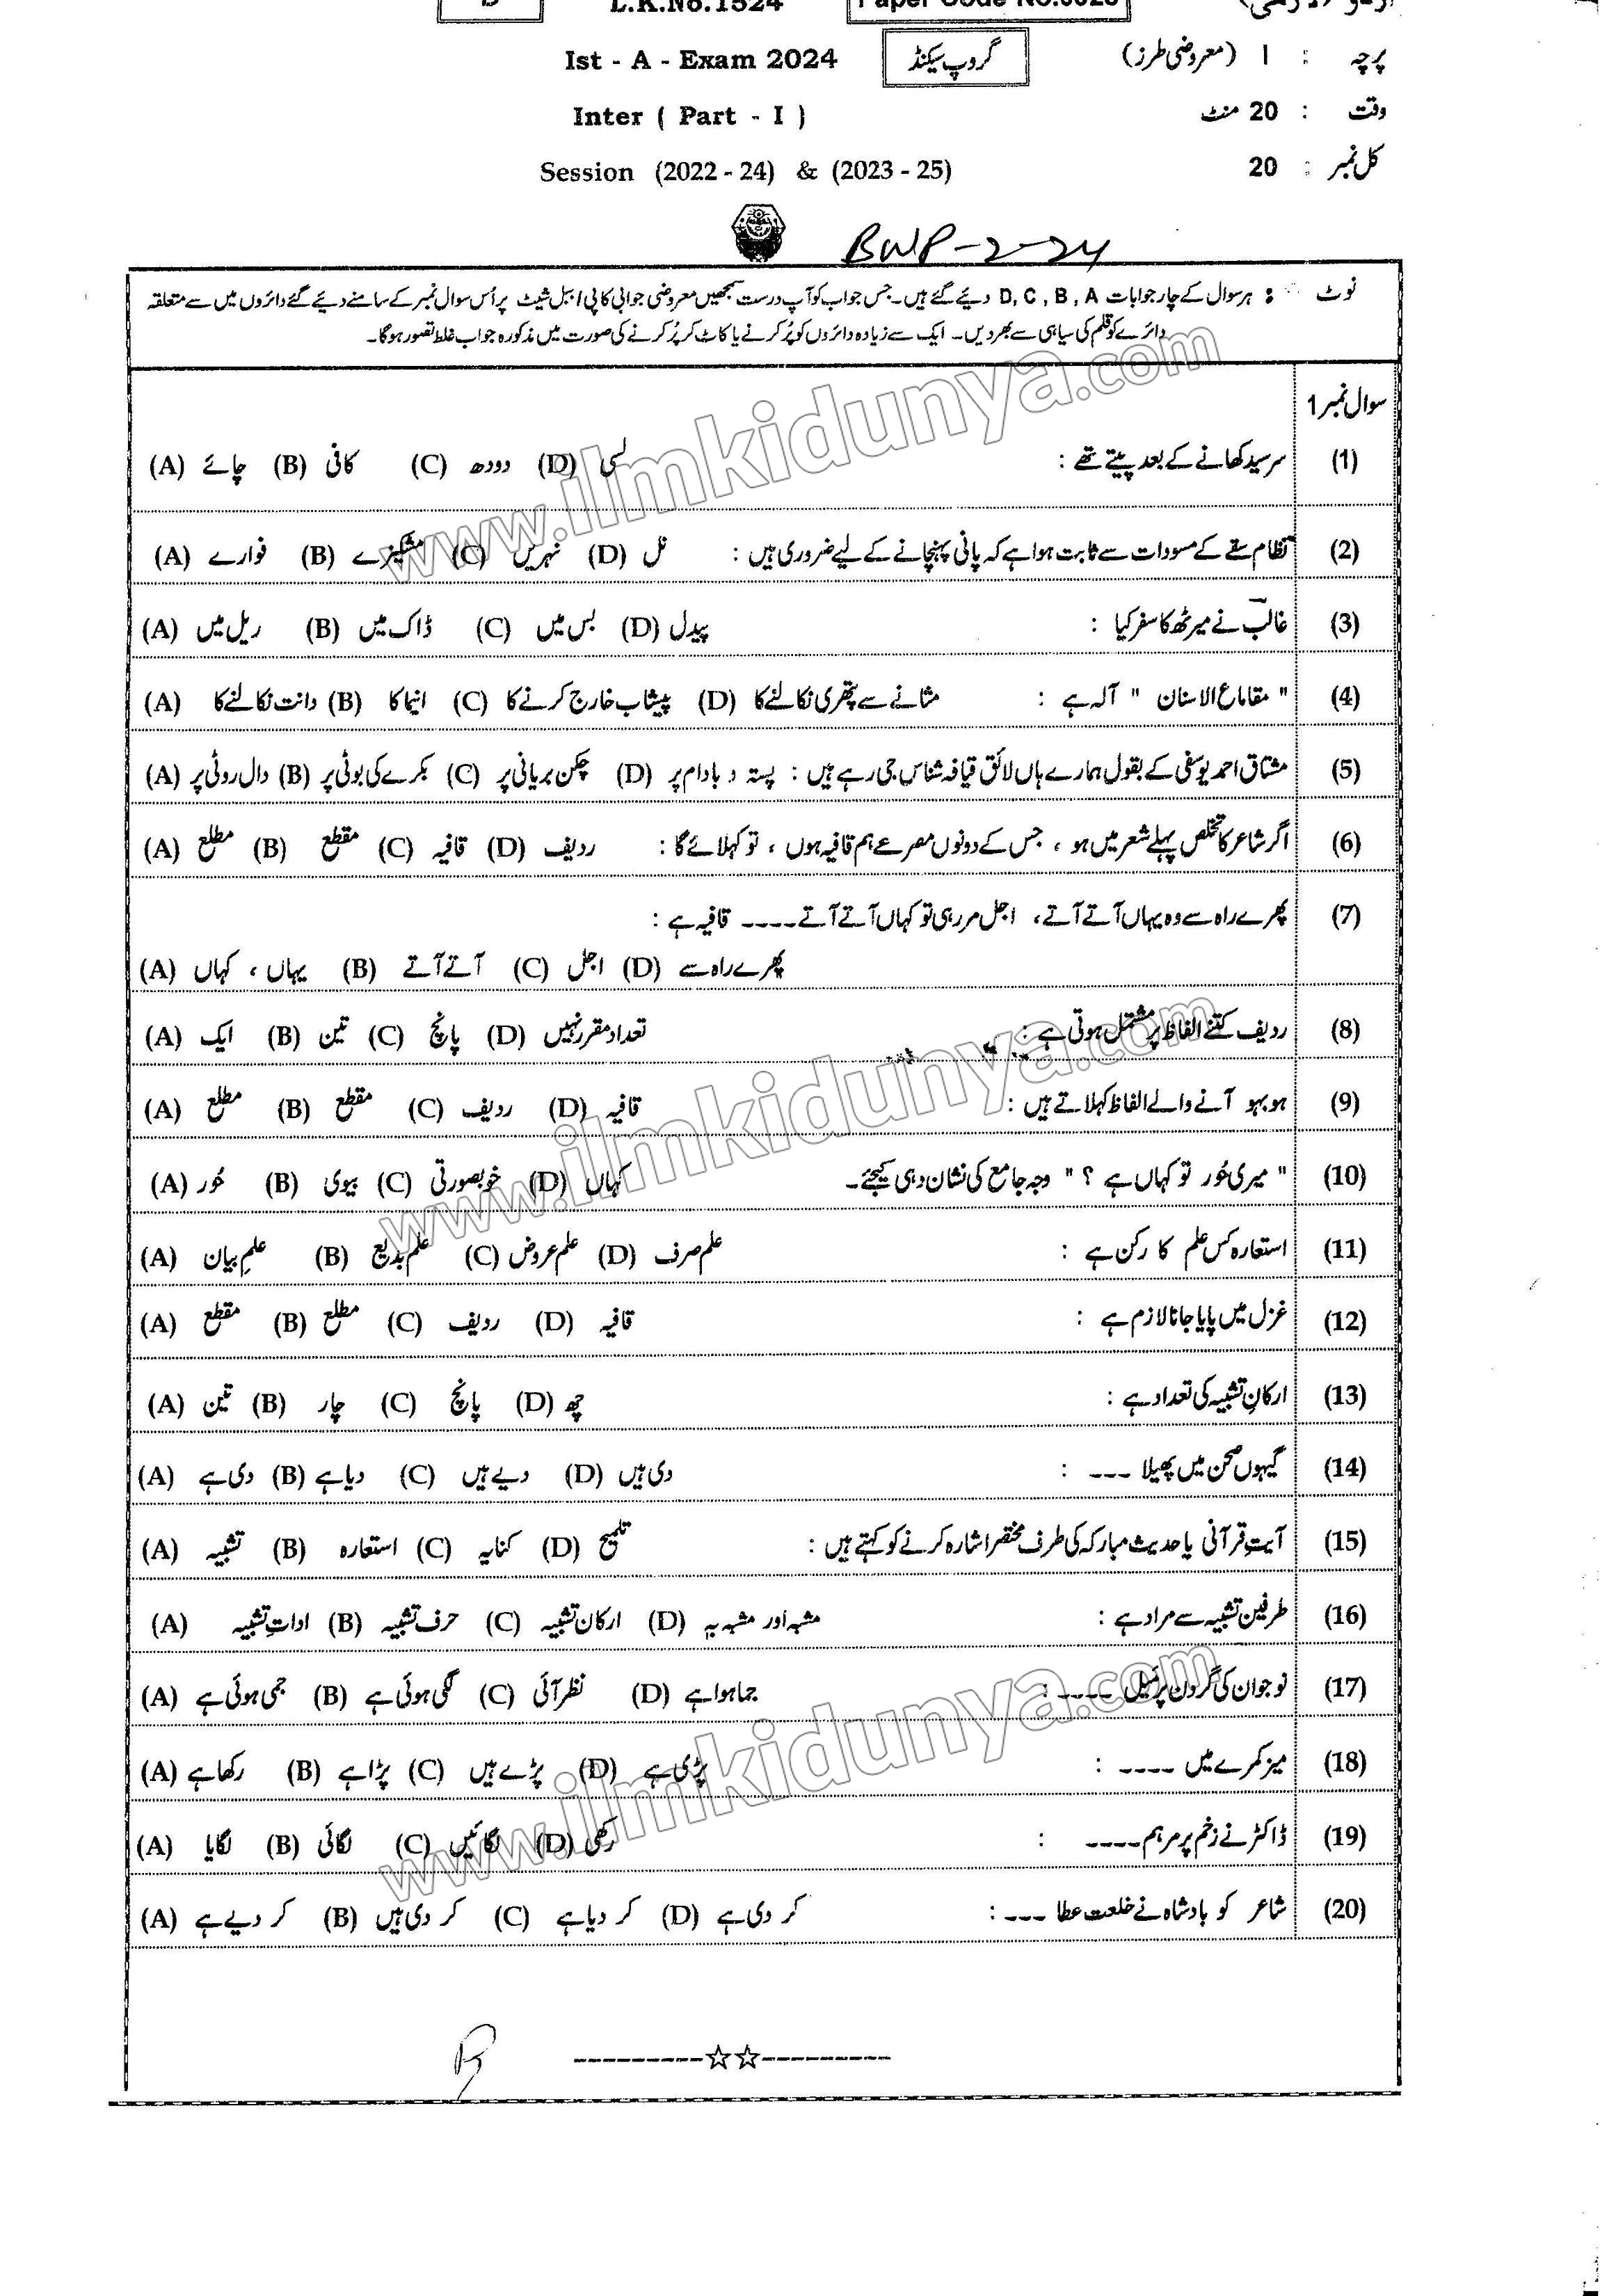 L.K.No.1524
Ist - A - Exam 2024 گروپ سیکنڈ پرچہ : I (معروضی طرز)
Inter ( Part - I ) وقت : 20 منٹ
Session (2022 - 24) & (2023 - 25) کل نمبر : 20
BWP-2-24
نوٹ : ہر سوال کے چار جوابات D, C, B, A دیئے گئے ہیں۔ جس جواب کو آپ درست سمجھیں معروضی جوابی کاپی / ببل شیٹ پر اُس سوال نمبر کے سامنے دیئے گئے دائروں میں سے متعلقہ
دائرے کو قلم کی سیاہی سے بھر دیں۔ ایک سے زیادہ دائروں کو پُر کرنے یا کاٹ کر پُر کرنے کی صورت میں مذکورہ جواب غلط تصور ہوگا۔
سوال نمبر 1
(1) سرسید کھانے کے بعد پیتے تھے : لسی (D) دودھ (C) کافی (B) چائے (A)
(2) نظام سقے کے مسودات سے ثابت ہوا ہے کہ پانی پہنچانے کے لیے ضروری ہیں : نل (D) نہریں (C) مشکیزے (B) فوارے (A)
(3) غالب نے میرٹھ کا سفر کیا : پیدل (D) بس میں (C) ڈاک میں (B) ریل میں (A)
(4) " مقاماع الاسنان " آلہ ہے : مثانے سے پتھری نکالنے کا (D) پیشاب خارج کرنے کا (C) انیما کا (B) دانت نکالنے کا (A)
(5) مشتاق احمد یوسفی کے بقول ہمارے ہاں لائق قیافہ شناس جی رہے ہیں : پستہ و بادام پر (D) چکن بریانی پر (C) بکرے کی بوٹی پر (B) دال روٹی پر (A)
(6) اگر شاعر کا تخلص پہلے شعر میں ہو ، جس کے دونوں مصرعے ہم قافیہ ہوں ، تو کہلائے گا : ردیف (D) قافیہ (C) مقطع (B) مطلع (A)
(7) پھرے راہ سے وہ یہاں آتے آتے ، اجل مر رہی تو کہاں آتے آتے ---- قافیہ ہے :
پھرے راہ سے (D) اجل (C) آتے آتے (B) یہاں ، کہاں (A)
(8) ردیف کتنے الفاظ پر مشتمل ہوتی ہے : تعداد مقرر نہیں (D) پانچ (C) تین (B) ایک (A)
(9) ہو بہو آنے والے الفاظ کہلاتے ہیں : قافیہ (D) ردیف (C) مقطع (B) مطلع (A)
(10) " میری حُور تو کہاں ہے ؟ " وجہ جامع کی نشان دہی کیجئے۔ کہاں (D) خوبصورتی (C) بیوی (B) حُور (A)
(11) استعارہ کس علم کا رکن ہے : علم صرف (D) علم عروض (C) علم بدیع (B) علمِ بیان (A)
(12) غزل میں پایا جانا لازم ہے : قافیہ (D) ردیف (C) مطلع (B) مقطع (A)
(13) ارکانِ تشبیہ کی تعداد ہے : چھ (D) پانچ (C) چار (B) تین (A)
(14) گیہوں صحن میں پھیلا --- : دی ہیں (D) دیے ہیں (C) دیا ہے (B) دی ہے (A)
(15) آیتِ قرآنی یا حدیث مبارکہ کی طرف مختصر اشارہ کرنے کو کہتے ہیں : تلمیح (D) کنایہ (C) استعارہ (B) تشبیہ (A)
(16) طرفین تشبیہ سے مراد ہے : مشبہ اور مشبہ بہٖ (D) ارکان تشبیہ (C) حرف تشبیہ (B) اداتِ تشبیہ (A)
(17) نوجوان کی گردن پر میل ---- : جما ہوا ہے (D) نظر آئی (C) لگی ہوئی ہے (B) جمی ہوئی ہے (A)
(18) میز کمرے میں ---- : پڑی ہے (D) پڑے ہیں (C) پڑا ہے (B) رکھا ہے (A)
(19) ڈاکٹر نے زخم پر مرہم ---- : رکھی (D) لگائیں (C) لگائی (B) لگایا (A)
(20) شاعر کو بادشاہ نے خلعت عطا --- : کر دی ہے (D) کر دیا ہے (C) کر دی ہیں (B) کر دیے ہے (A)
www.ilmkidunya.com
www.ilmkidunya.com
www.ilmkidunya.com